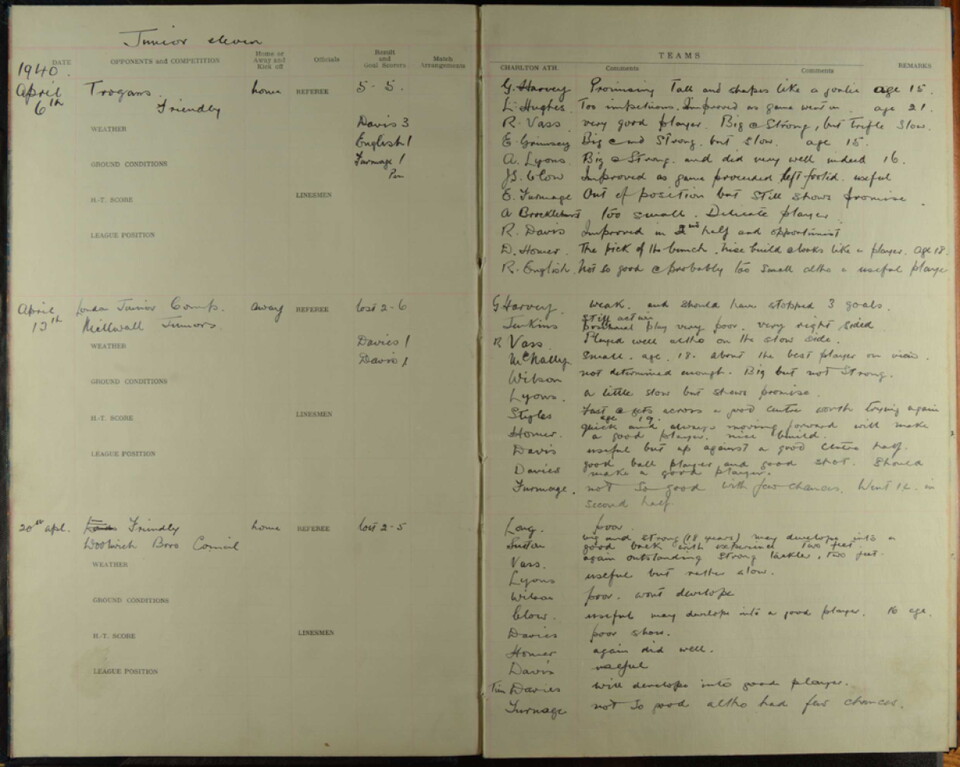 Junior eleven
DATE OPPONENTS and COMPETITION Home or Away and Kick off Officials Result and Goal Scorers Match Arrangements
1940.
April 6th Trogans. Friendly home REFEREE 5 - 5.
WEATHER Davis 3
English 1
GROUND CONDITIONS Furmage 1
Pen
LINESMEN
H.-T. SCORE
LEAGUE POSITION
April 13th London Junior Comp. away REFEREE lost 2-6
Millwall Juniors
WEATHER Davies 1
Davis 1
GROUND CONDITIONS
H.-T. SCORE LINESMEN
LEAGUE POSITION
20th apl. Friendly home REFEREE lost 2-5
Woolwich Boro Council
WEATHER
GROUND CONDITIONS
H.-T. SCORE LINESMEN
LEAGUE POSITION
TEAMS
CHARLTON ATH. Comments Comments REMARKS
G. Harvey Promising Tall and shapes like a goalie age 15.
L. Hughes Too impetious. Improved as game went on. age 21.
R. Vass. very good player. Big & Strong, but Trifle Slow.
E. Big and Strong. but slow. age 15.
A. Lyons. Big & Strong. and did very well indeed 16.
Clow Improved as game proceeded left footed. useful
E. Furmage Out of position but still shows promise.
A Brocklehurst too small. Delicate player.
R. Davis Improved in 2nd half and opportunist
D. Homer. The pick of the bunch. nice build & looks like a player. age 18.
R. English Not so good & probably too small altho a useful player
G Harvey. weak. and should have stopped 3 goals.
Jenkins still play very poor. very right sided
R Vass. Played well altho on the slow side.
McNally. Small. age. 18. about the best player on view.
Wilson not determined enough. Big but not Strong.
Lyons. a little slow but shows promise.
Styles Fast & gets across a good centre worth trying again
age 19.
Homer. quick and always moving forward will make
a good player. nice build.
Davis useful but up against a good Centre half.
Davies good ball player and good shot. Should
make a good player.
Furmage. not so good with few chances. Went I.L. in
second half.
Long. poor.
big and strong (18 years) may develope into a
good back with experience two feet
Vass. again outstanding strong tackle, two feet.
Lyons useful but rather slow.
Wilson poor. wont develope
Clow. useful may develope into a good player. 16 age.
Davies poor show.
Homer again did well.
Davis useful
Tim Davies will develope into good player.
Furmage not so good altho had few chances.